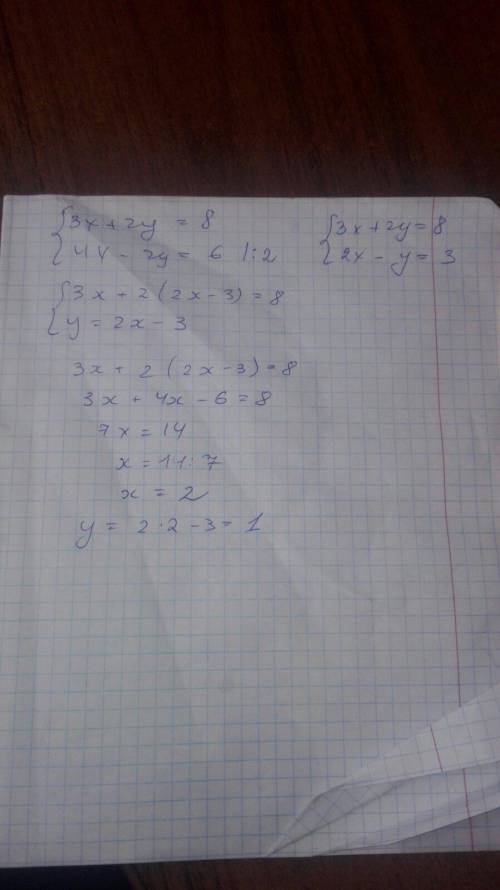 {3x + 2y = 8
{4x - 2y = 6 |:2
{3x + 2y = 8
{2x - y = 3
{3x + 2(2x - 3) = 8
{y = 2x - 3
3x + 2(2x - 3) = 8
3x + 4x - 6 = 8
7x = 14
x = 14:7
x = 2
y = 2·2 - 3 = 1